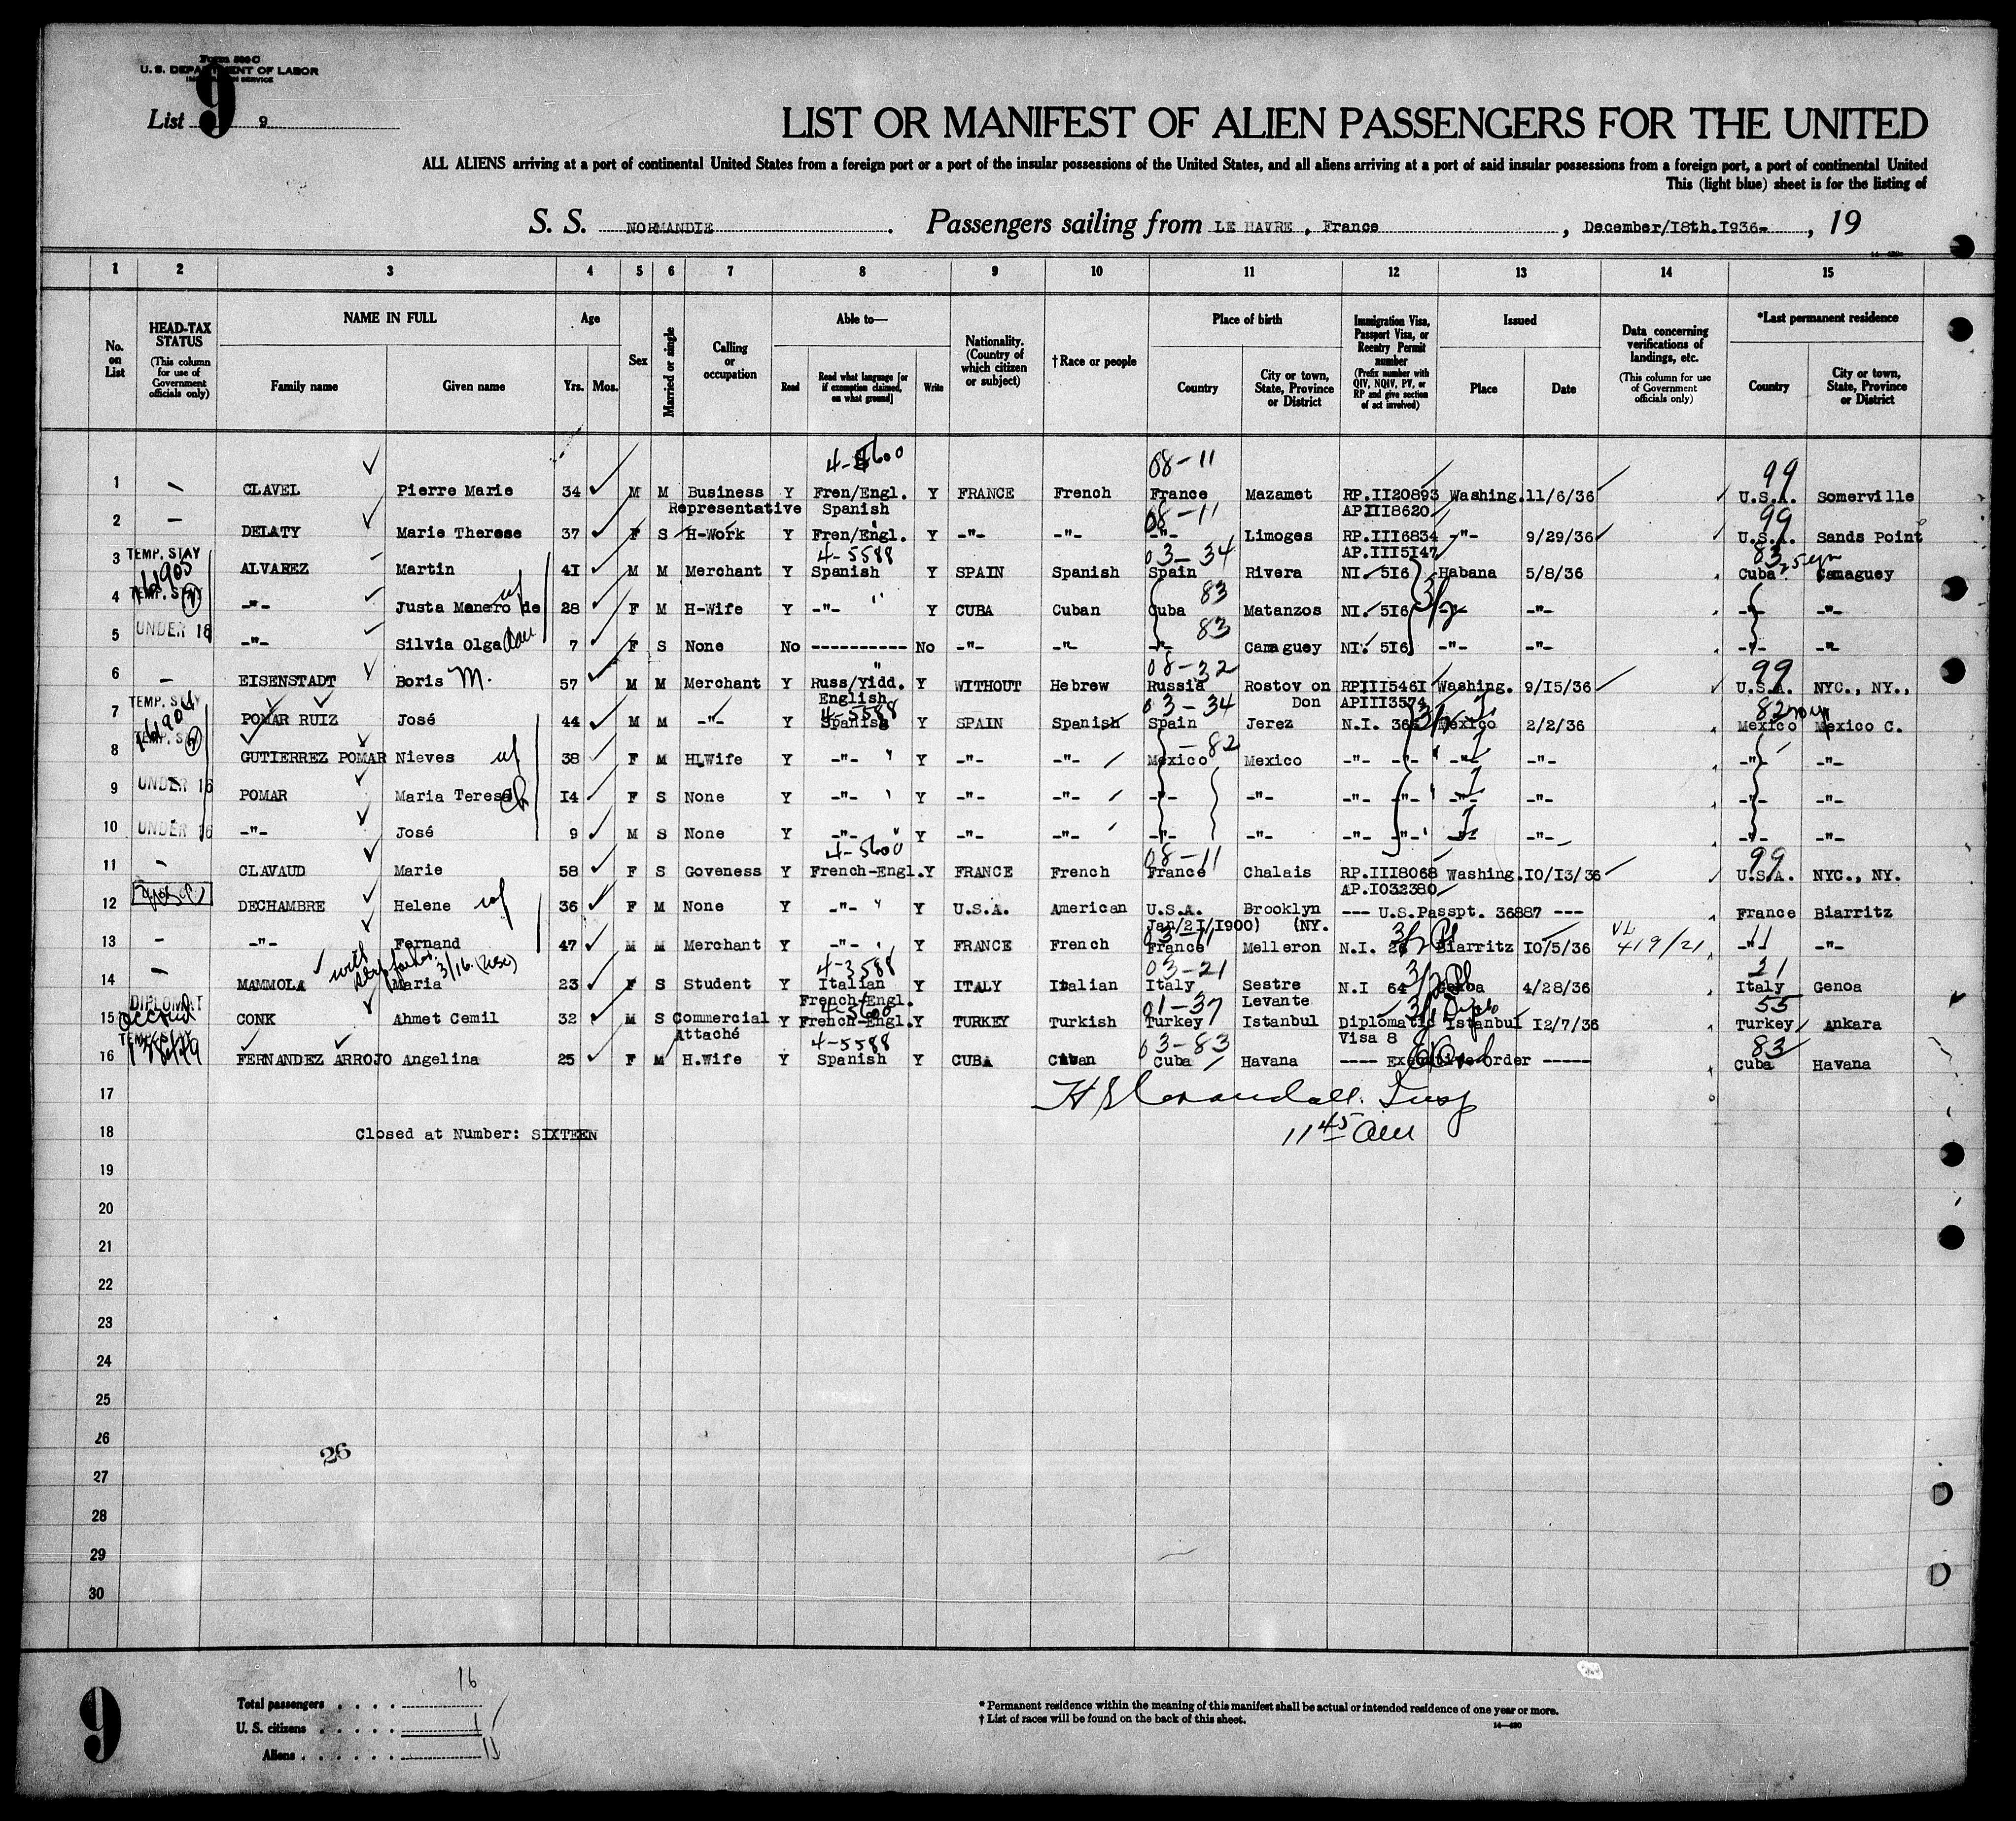 Form 500 C
U. S. DEPARTMENT OF LABOR
IMMIGRATION SERVICE
9
List 9
LIST OR MANIFEST OF ALIEN PASSENGERS FOR THE UNITED
ALL ALIENS arriving at a port of continental United States from a foreign port or a port of the insular possessions of the United States, and all aliens arriving at a port of said insular possessions from a foreign port, a port of continental United
This (light blue) sheet is for the listing of
S. S. NORMANDIE. Passengers sailing from LE HAVRE, France, December/18th.1936-, 19
1 2 3 4 5 6 7 8 9 10 11 12 13 14 15
No. on List
HEAD-TAX STATUS (This column for use of Government officials only)
NAME IN FULL
Family name
Given name
Age
Yrs. Mos.
Sex
Married or single
Calling or occupation
Able to—
Read
Read what language [or if exemption claimed, on what ground]
Write
Nationality. (Country of which citizen or subject)
†Race or people
Place of birth
Country
City or town, State, Province or District
Immigration Visa, Passport Visa, or Reentry Permit number (Prefix number with QIV, NQIV, PV, or RP and give section of act involved)
Issued
Place
Date
Data concerning verifications of landings, etc. (This column for use of Government officials only)
*Last permanent residence
Country
City or town, State, Province or District
08-11 99
1 — CLAVEL Pierre Marie 34 M M Business Y Fren/Engl. Y FRANCE French France Mazamet RP.II20893 Washing.11/6/36 U.S.A. Somerville
Representative Spanish 08-11 APIII8620 99
2 — DELATY Marie Therese 37 F S H-Work Y Fren/Engl. Y -"- -"- -"- Limoges RP.III6834 -"- 9/29/36 U.S.A. Sands Point
TEMP. STAY 4-5588 03-34 AP.III5147 83
3 ALVAREZ Martin 41 M M Merchant Y Spanish Y SPAIN Spanish Spain Rivera NI. 516 Habana 5/8/36 Cuba Camaguey
TEMP. STAY 83
4 -"- Justa Manero de 28 F M H-Wife Y -"- Y CUBA Cuban Cuba Matanzos NI. 516 -"- -"- -"- -"-
UNDER 16 83
5 -"- Silvia Olga 7 F S None No ---------- No -"- -"- -"- Camaguey NI. 516 -"- -"- -"- -"-
08-32 99
6 — EISENSTADT Boris M. 57 M M Merchant Y Russ/Yidd. Y WITHOUT Hebrew Russia Rostov on RPIII5461 Washing. 9/15/36 U.S.A. NYC., NY.,
TEMP. STAY English 4-5588 03-34 Don APIII3574 82
7 POMAR RUIZ José 44 M M -"- Y Spanish Y SPAIN Spanish Spain Jerez N.I. Mexico 2/2/36 Mexico Mexico C.
82
8 GUTIERREZ POMAR Nieves wf 38 F M H.Wife Y -"- Y -"- -"- Mexico Mexico -"- -"- -"- -"- -"- -"-
9 UNDER 16 POMAR Maria Teresa 14 F S None Y -"- Y -"- -"- -"- -"- -"- -"- -"- -"- -"- -"-
10 UNDER 16 -"- José 9 M S None Y -"- Y -"- -"- -"- -"- -"- -"- -"- -"- -"- -"-
4-5600 08-11 99
11 — CLAVAUD Marie 58 F S Goveness Y French-Engl. Y FRANCE French France Chalais RP.III8068 Washing.10/13/36 U.S.A. NYC., NY.
AP.I032380
12 DECHAMBRE Helene wf 36 F M None Y -"- Y U.S.A. American U.S.A. Brooklyn --- U.S.Passpt. 36887 --- France Biarritz
Jan/21/1900) (NY.
13 — -"- Fernand 47 M M Merchant Y -"- Y FRANCE French France Melleron N.I. Biarritz 10/5/36 419/21 -"- -"-
with 4-3588 03-21 21
14 — MAMMOLA Maria 23 F S Student Y Italian Y ITALY Italian Italy Sestre N.I 64 Genoa 4/28/36 Italy Genoa
DIPLOMAT French/Engl. 01-37 Levante 55
15 CONK Ahmet Cemil 32 M S Commercial Y French-Engl. Y TURKEY Turkish Turkey Istanbul Diplomatic Istanbul 12/7/36 Turkey Ankara
Attaché 4-5588 03-83 Visa 8 83
16 FERNANDEZ ARROJO Angelina 25 F M H.Wife Y Spanish Y CUBA Cuban Cuba Havana ---- Executive Order ----- Cuba Havana
17
11 45 am
18 Closed at Number: SIXTEEN
19
20
21
22
23
24
25
26
26
27
28
29
30
9
Total passengers . . . . 16
U. S. citizens . . . . . 1
Aliens . . . . . . 15
* Permanent residence within the meaning of this manifest shall be actual or intended residence of one year or more.
† List of races will be found on the back of this sheet.
14—480